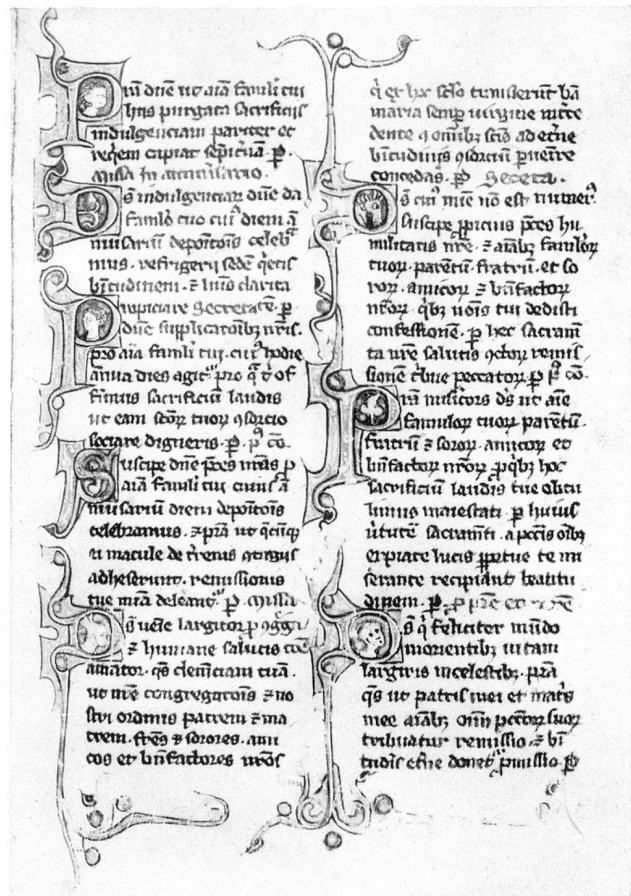 P m̄ dn̄e ut aīa famuli tui
hiis purgata sacrificiis
indulgenciam pariter et
Missa in anniuersario.
Ds indulgenciar dn̄e da
famulo tuo cui⁹ diem an
niuersarium depositōis celeb
mus. refrigerii sedē q̄etis
bt̄itudinem. ⁊ luīs clarita
Propiciare Secreta tē. p̄
dn̄e supplicatōibꝫ nr̄is.
pro aīa famuli tui. cui⁹ hodie
annua dies agit᷑ pro q̄ t̄ of
ferimus sacrificiū laudis
ut eam sc̄oꝝ tuoꝝ ꝯsorcio
sociare digneris. P. p⁹ cō.
Suscipe dn̄e p̄ces nr̄as ꝓ
aīa famuli tui cuius an
niuersariū diem depositōis
celebramus. ⁊ pr̄a ut q̄ cūq̄
ei macule de t̄renis ꝯtagiis
adheserunt. remissionis
tue mīa deleant᷑. P. Missa
Ds uēie largitor ꝓ ꝯggī
⁊ humane salutis
amator. qs clemēciam tuā.
ut nr̄e congregatōis ⁊ no
stri ordinis patrem ⁊ ma
trem. fr̄es ⁊ sorores. ami
cos et bn̄factores nr̄os
q̄ ex hoc sc̄lo transierunt bā
maria semp̄ uirgine int̄ce
dente ꝯ om̄ibꝫ sc̄is ad et̄ne
bt̄itudinis ꝯsorciū p̄uenire
concedas. P. Secreta.
Ds cui⁹ mīe nō est numer⁹
suscipe ꝓpicius p̄ces hu
militatis nr̄e. ⁊ aīabꝫ famuloꝝ
tuoꝝ. parentū. fratrū. et so
roꝝ. amicoꝝ ⁊ bn̄factoꝝ
nr̄oꝝ. q̄bꝫ noīs tui dedisti
confessionē. p̄ hec sacram̄
ta nr̄e salutis cūctoꝝ remis
sionē t̄bue peccatoꝝ. P. p⁹ cō.
P m̄ misicors ds̄ ut aīe
famuloꝝ tuoꝝ parentū.
fratrū ⁊ soroꝝ. amicoꝝ et
bn̄factoꝝ nr̄oꝝ. ꝓ q̄bꝫ hoc
sacrificiū laudis tue obtu
limus maiestati. p̄ huius
uirtutē sacram̄ti. a pcc̄is oībꝫ
expiate lucis ꝑpetue te mi
serante recipiant beatitu
dinem. P.
Ds q̄ feliciter mūdo
morientibꝫ uitam
largiris in celestibꝫ. pr̄a
qs ut patris mei et mat̄s
mee aīabꝫ om̄i pcc̄oꝝ suoꝝ
tribuatur remissio. ⁊ bt̄i
tudīs et̄ne donet᷑ ꝑmissio. P